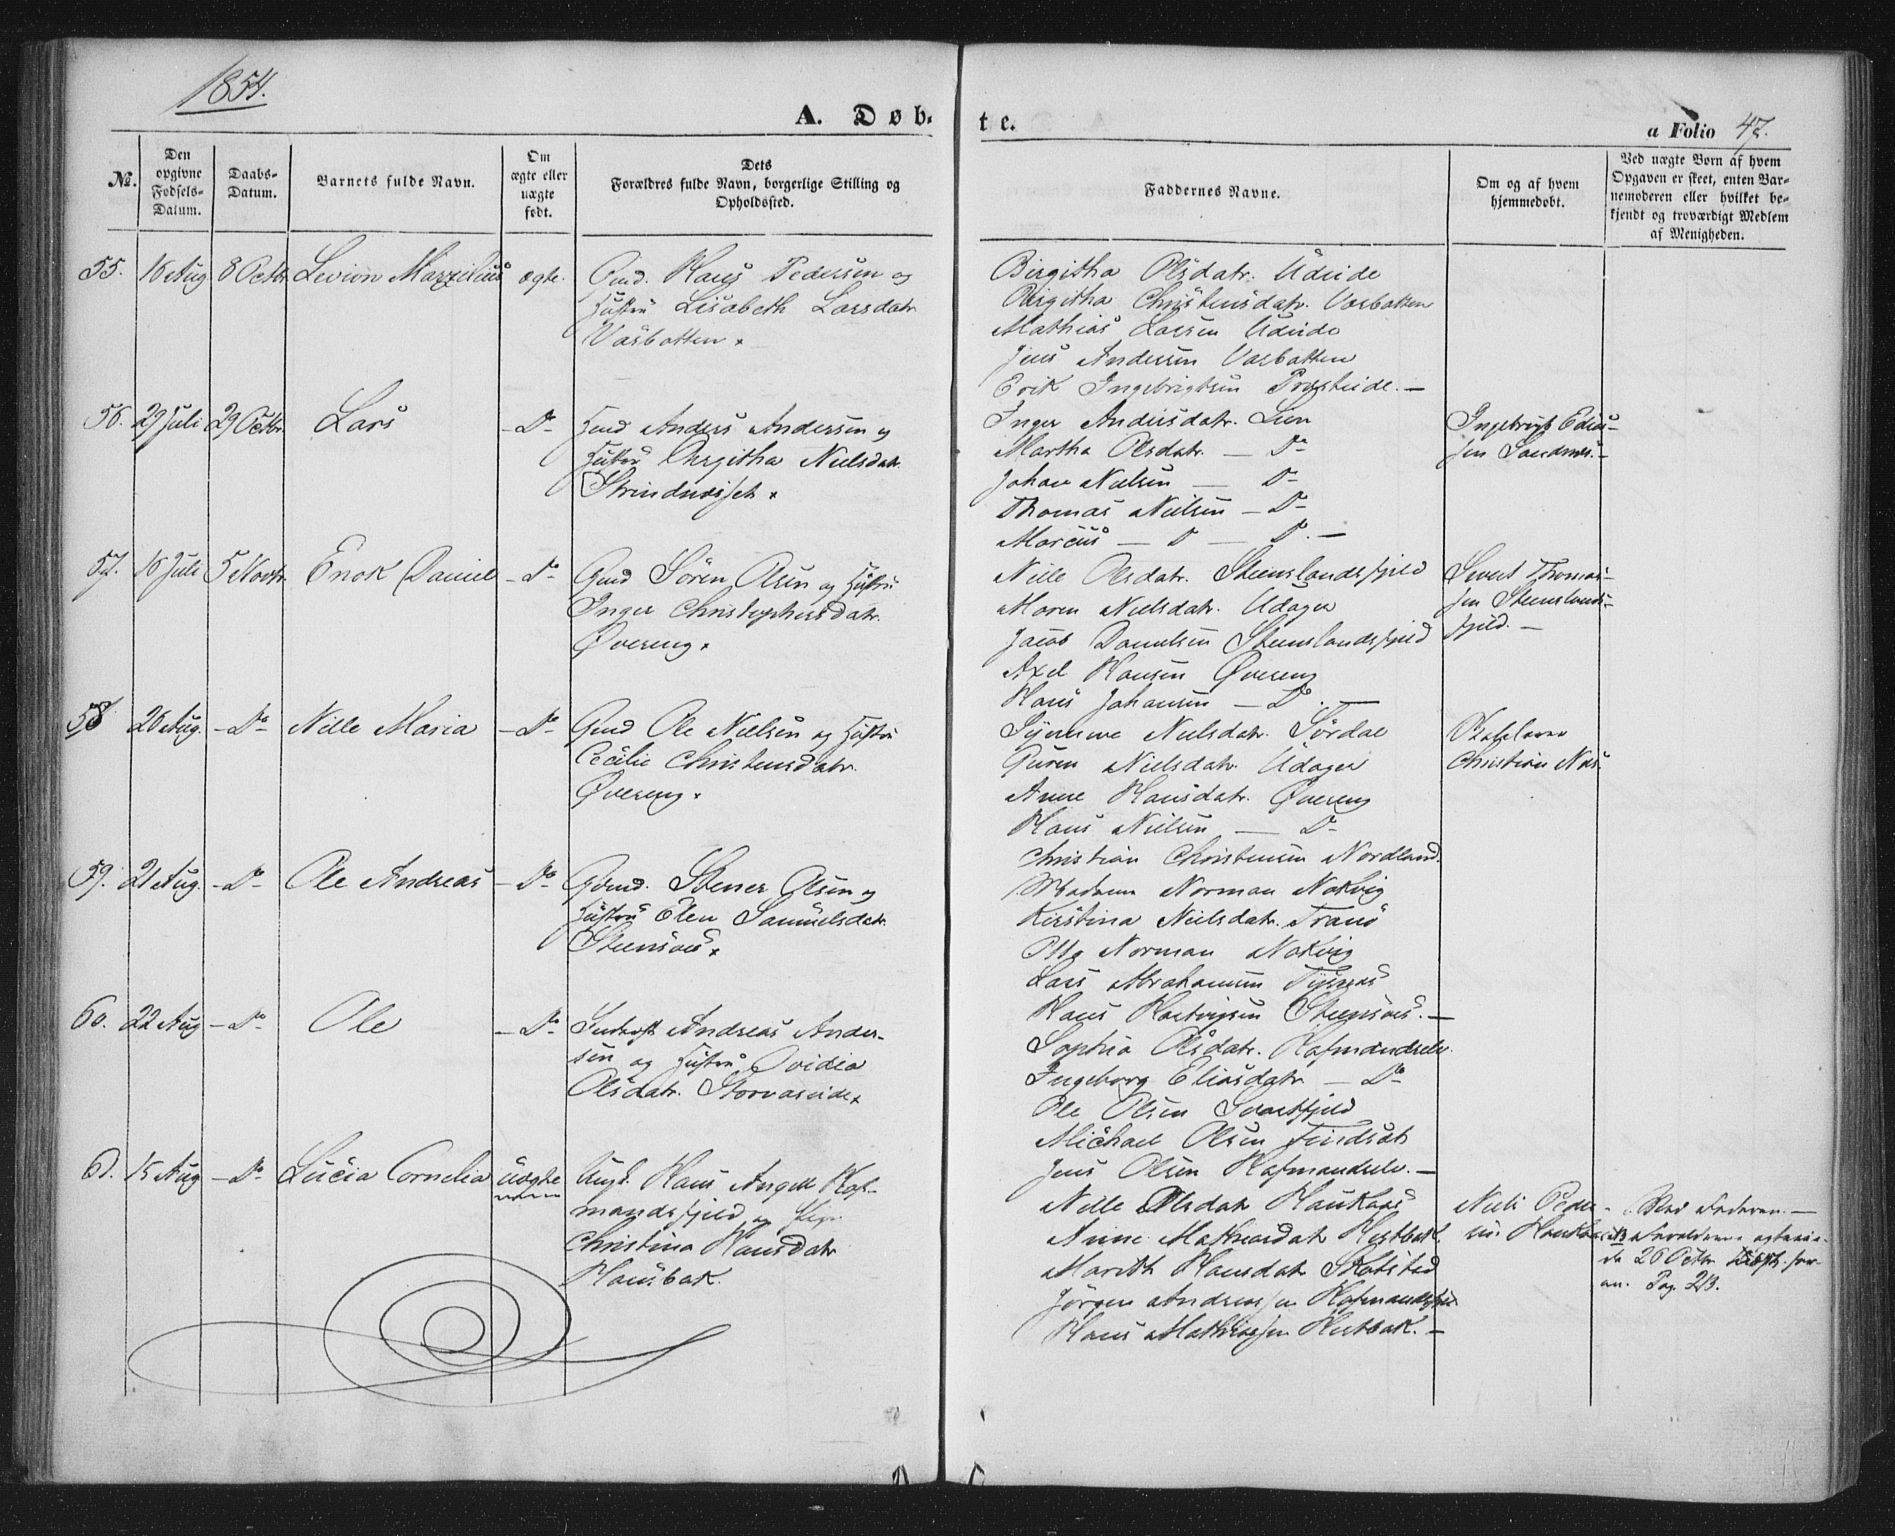 1854.
A. Døb-
te.
a Folio 47.
No.
Den opgivne Fødsels-Datum.
Daabs-Datum.
Barnets fulde Navn.
Om ægte eller uægte født.
Dets Forældres fulde Navn, borgerlige Stilling og Opholdssted.
Faddernes Navne.
Om og af hvem hjemmedøbt.
Ved uægte Børn af hvem Opgaven er skeet, enten Barnemoderen eller hvilket bekjendt og troværdigt Medlem af Menigheden.
55. 16 Aug 8 Octbr. ægte.
Gmd. Hans Pedersen og
Hustru Lisabeth Larsdatr.
Vasbotten
Birgitha Olsdatr. Udeide
Birgitha Christensdatr. Vasbotten
Mathias Larsen Udeide
Jens Andersen Vasbotten
Erik Ingebrigtsen Præsteide. —
56. 29 Juli 29 Octbr. Lars — Do —
Anders Andersen og
Hustru Birgitha Nielsdatr.
Inger Andersdatr. Lun
Martha Olsdatr. — Do
Johan Nielsen — Do
Thomas Nielsen — Do
Marcus — Do — Do. —
Ingebrigt
sen Sandnes. —
57. 16 Juli 5 Novbr. Enok Daniel — Do —
Gmd Sören Olsen og Hustru
Inger Christophersdatr.
Øvereng.
Nille Olsdatr. Steenslandsfjeld
Maren Nielsdatr. Udager
Jacob Danielsen Steenslandsfjeld
Axel Hansen Øvereng
Hans Johansen — Do. —
Sivert Thomas-
sen Steenslands-
fjeld. —
58 26 Aug. — Do — Nille Maria — Do —
Gmd Ole Nielsen og Hustru
Cecilie Christensdatr.
Øvereng.
Nielsdatr. Sørdal
Guren Nielsdatr. Udager
Anne Hansdatr. Øvereng
Hans Nielsen — Do
Christian Christensen Nordland.
Skolelærer
Christian Næs.
59. 21 Aug. — Do — Ole Andreas — Do —
Stener Olsen og
Hustru Elen Samuelsdatr.
Steensvæs
Madame Norman Nakvig
Kirstina Nielsdatr. Tranö
Otto Norman Nakvig
Lars Abrahamsen
Hans Hartvigsen Steensvæs. —
60. 22 Aug — Do — Ole — Do —
Andreas Ander-
sen og Hustru Ovidia
Olsdatr. Storvaseide
Sophia Olsdatr. Hafmandselv.
Ingeborg Eliasdatr — Do —
Ole Olsen Svartfjeld
Michael Olsen Findsæt
Jens Olsen Hafmandselv. —
61. 15 Aug — Do — Lucia Cornelia uægte
Ungk. Hans Angell Haf-
mandsfjeld og Pige
Christina Hansdatr
Hansbak.
Nille Olsdatr
Anne Mathiasdatr
Marith Hansdatr Skatstad
Jörgen Andreassen Hafmandsfjeld
Hans Mathiassen —
Niels Peder-
sen
Ved Faderen. —
NB Forældrene
26 Octbr
Pag. 213.